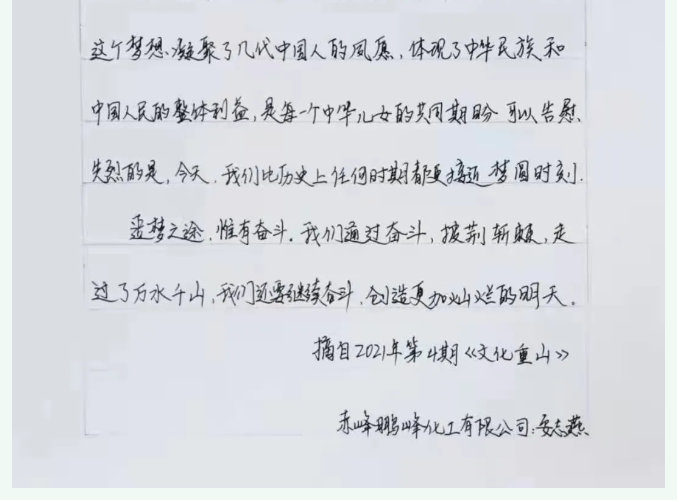 这个梦想凝聚了几代中国人的夙愿,体现了中华民族和
中国人民的整体利益,是每一个中华儿女的共同期盼 可以告慰
先烈的是,今天,我们比历史上任何时期都更接近 梦圆时刻.
逐梦之途,惟有奋斗.我们通过奋斗,披荆斩棘,走
过了万水千山,我们还要继续奋斗,创造更加灿烂的明天.
摘自2021年第4期《文化重山》
赤峰鹏峰化工有限公司:安志燕